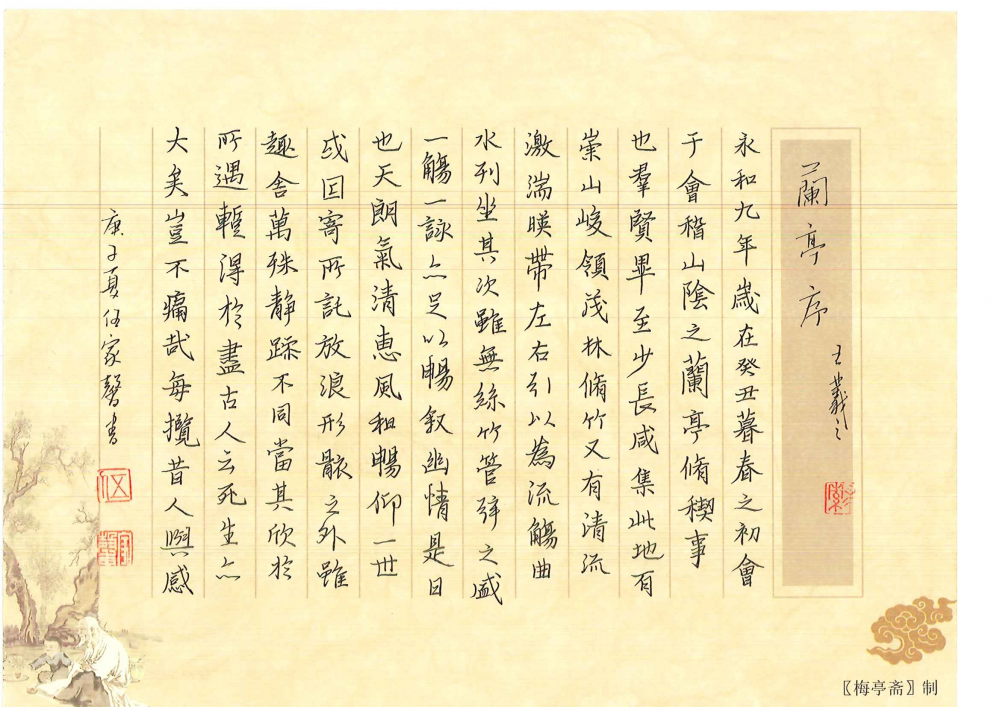 蘭亭序
王羲之
永和九年歲在癸丑暮春之初會
于會稽山陰之蘭亭脩稧事
也羣賢畢至少長咸集此地有
崇山峻領茂林脩竹又有清流
激湍暎帶左右引以為流觴曲
水列坐其次雖無絲竹管弦之盛
一觴一詠亦足以暢叙幽情是日
也天朗氣清惠風和暢仰一世
或因寄所託放浪形骸之外雖
趣舍萬殊静躁不同當其欣於
所遇蹔得於盡古人云死生亦
大矣豈不痛哉每攬昔人興感
庚子夏伍家馨書
伍
〖梅亭斋〗制